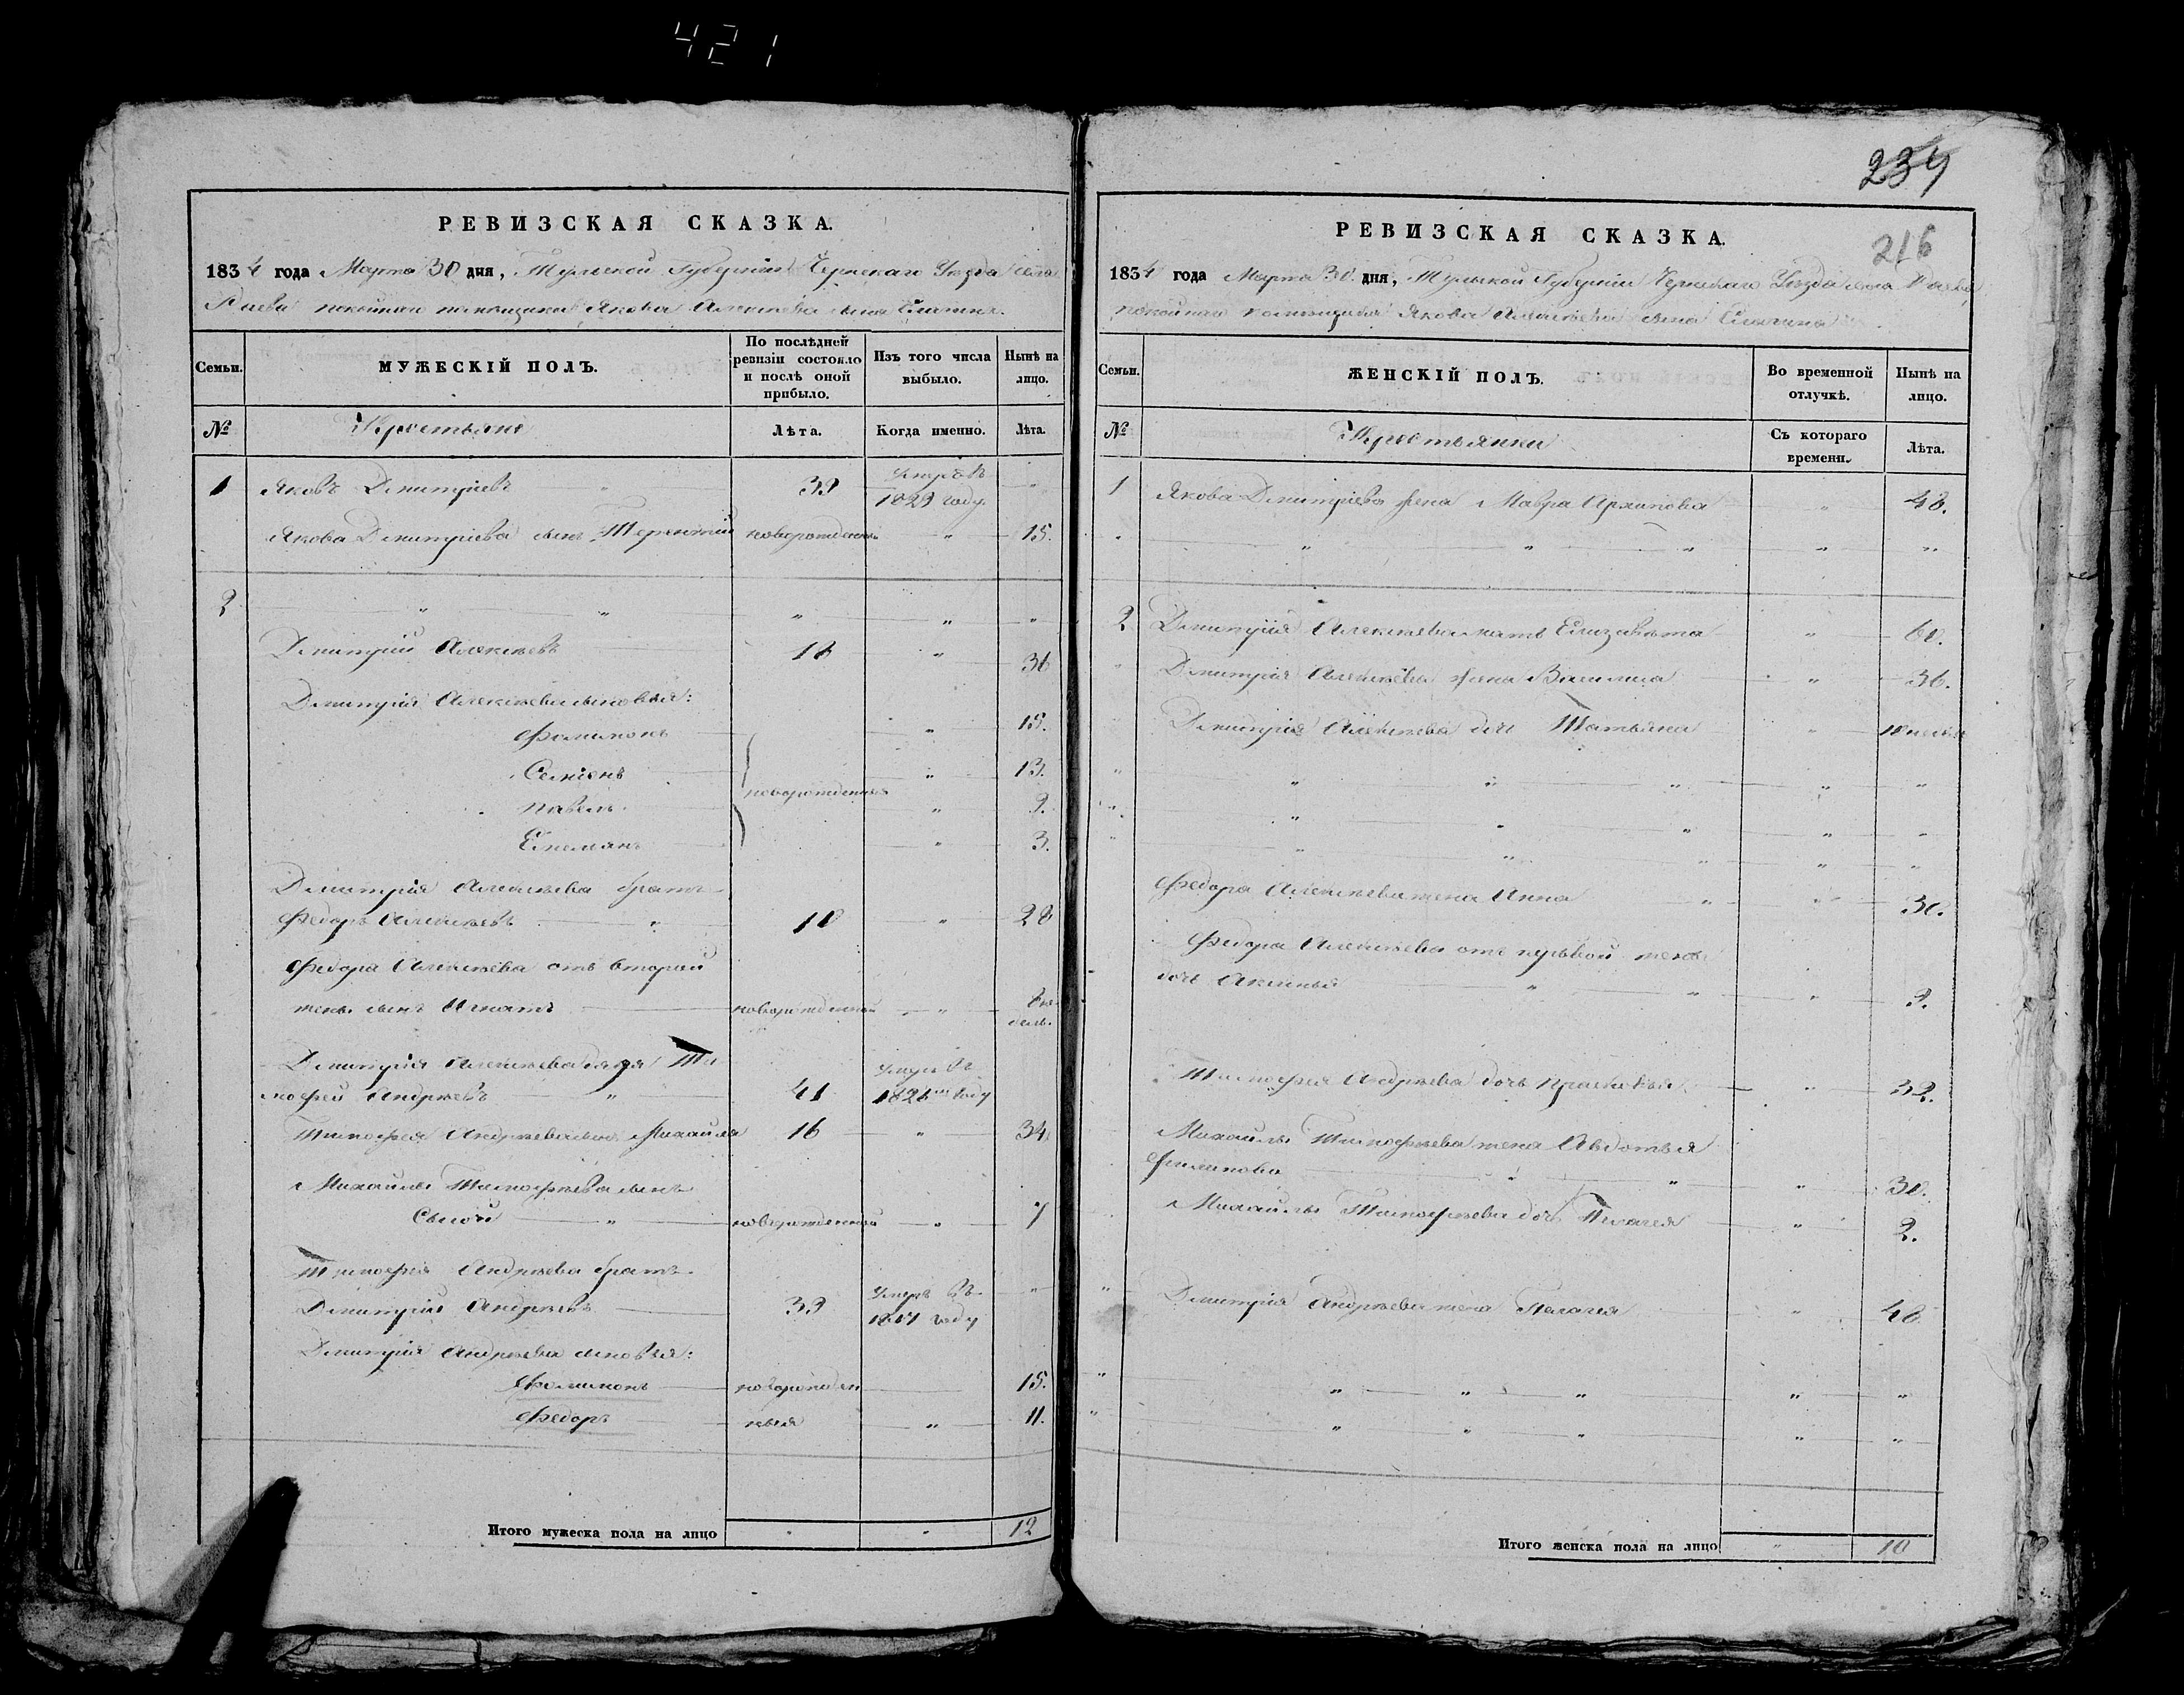 421
234
216
РЕВИЗСКАЯ СКАЗКА.
1834 года Марта 30 дня, Тульской Губернии Чернскаго Уезда села
Раева покойнаго помещика Якова Алексеева сына
Семьи.
МУЖЕСКІЙ ПОЛЪ.
По послѣдней ревизіи состояло и послѣ оной прибыло.
Изъ того числа выбыло.
Нынѣ на лицо.
№
Крестьяне
Лѣта.
Когда именно.
Лѣта.
1 Яковъ Дмитріевъ 39 умре въ 1829 году
Якова Дмитріева сынъ Терентий новорожденный 15.
2
Дмитрий Алексѣевъ 18 36
Дмитрия Алексѣева сыновья:
Филимонъ 15.
Семіонъ 13.
новорожденныя
Павелъ 9.
3.
Дмитрия Алексѣева братъ
Федоръ Алексѣевъ 10 28
Федора Алексѣева отъ второй
жены сынъ Игнатъ новорожденной
Дмитрия Алексѣева дядя Ти
мофей Андрѣевъ 41 умре въ 1826 году
Тимофея Андрѣева сынъ Михайла 16 34
Михайлы Тимофѣева сынъ
Сысой новорожденной 7
Тимофея Андрѣева братъ
Дмитрий Андрѣевъ 39 умеръ въ году
Дмитрия Андрѣева сыновья:
Филимонъ новорожден 15.
Федоръ ныя 11.
Итого мужеска пола на лицо 12
РЕВИЗСКАЯ СКАЗКА.
1834 года Марта 30 дня, Тульской Губерніи Чернскаго Уезда села Раева
покойнаго помещика Якова Алексѣева сына
Семьи.
ЖЕНСКІЙ ПОЛЪ.
Во временной отлучкѣ.
Нынѣ на лицо.
№
Крестьянки
Съ котораго времени.
Лѣта.
1 Якова Дмитріева жена Мавра Архипова 48.
2 Дмитрия Алексѣева мать Елизавета 60.
Дмитрия Алексѣева жена Василиса 36.
Дмитрия Алексѣева дочь Татьяна
Федора Алексѣева жена Анна 30.
Федора Алексѣева отъ первой жены
дочь Аксинья 9.
Тимофея Андрѣева дочь Прасковья 32.
Михайлы Тимофѣева жена Авдотья
Филипова 30.
Михайлы Тимофѣева дочь Пелагея 2.
Дмитрия Андрѣева жена Пелагея 48
Итого женска пола на лицо 10